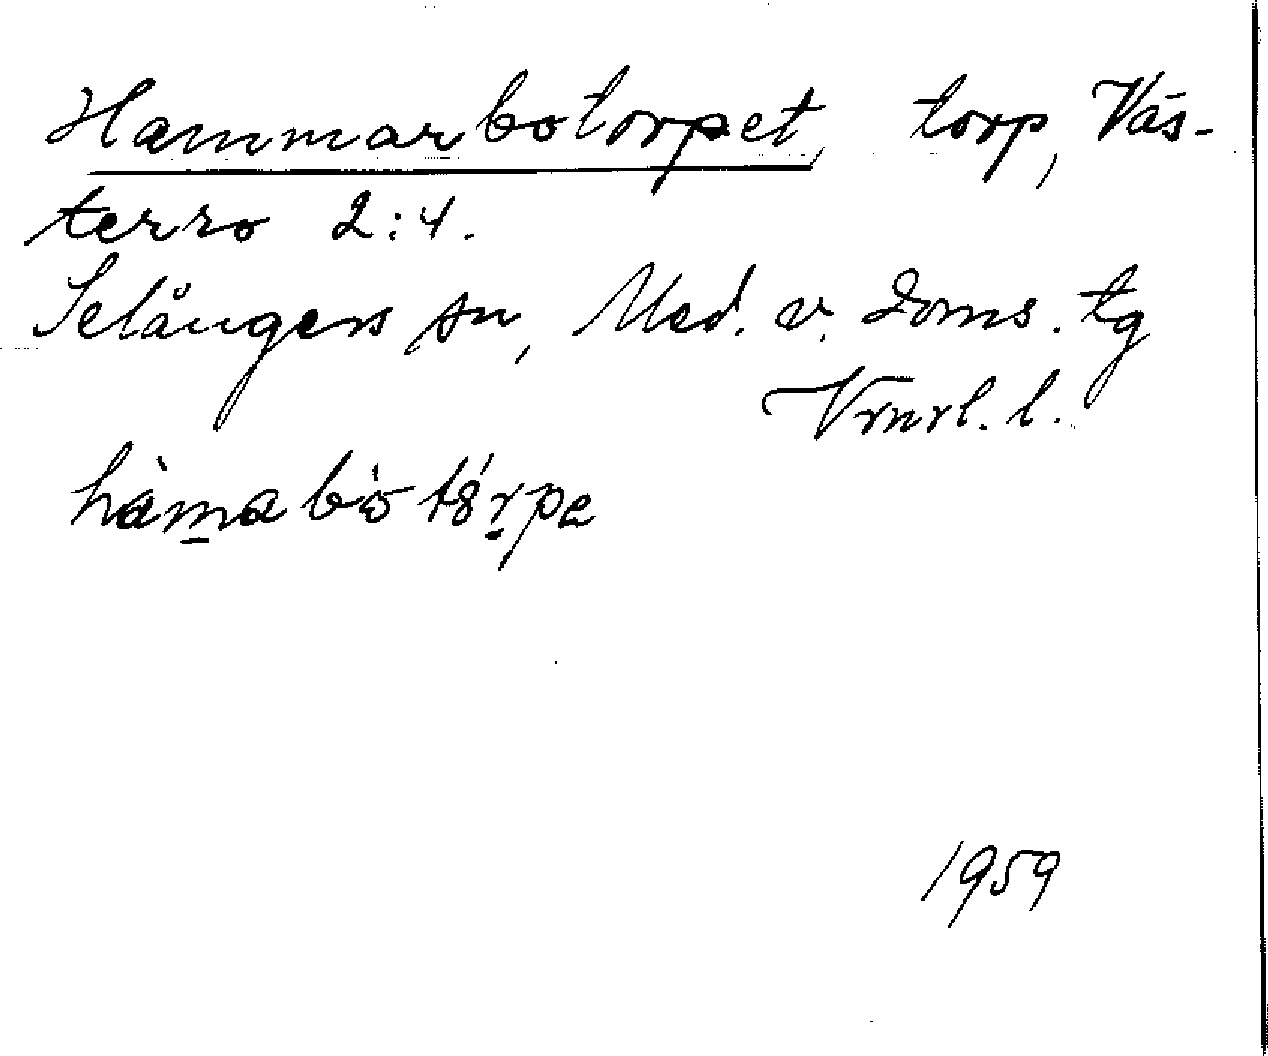 Hammarbotorpet, torp, Väs-
terro 2:4.
Selångers sn, Med. v. doms. tg
Vrnrl. l.
hàmabò tórpe
1959